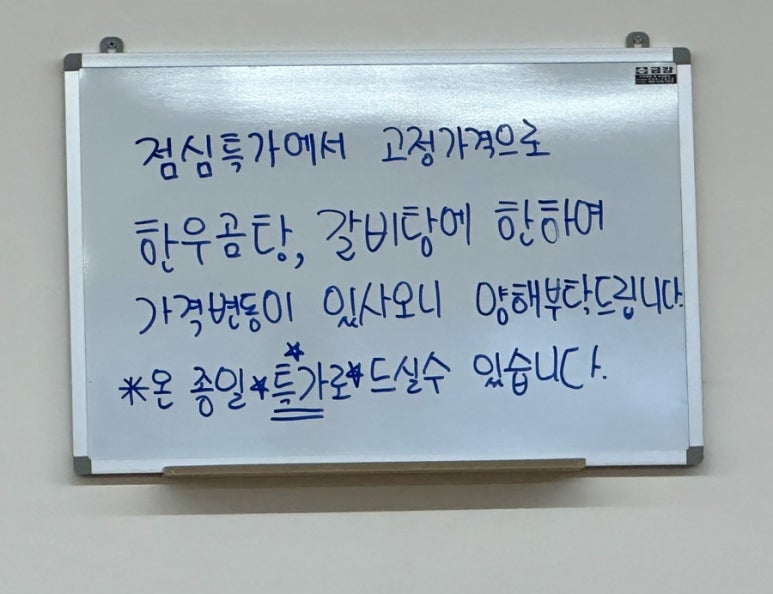 금강
점심특가에서 고정가격으로
한우곰탕, 갈비탕에 한하여
가격변동이 있사오니 양해부탁드립니다.
*온 종일★특가로★드실수 있습니다.